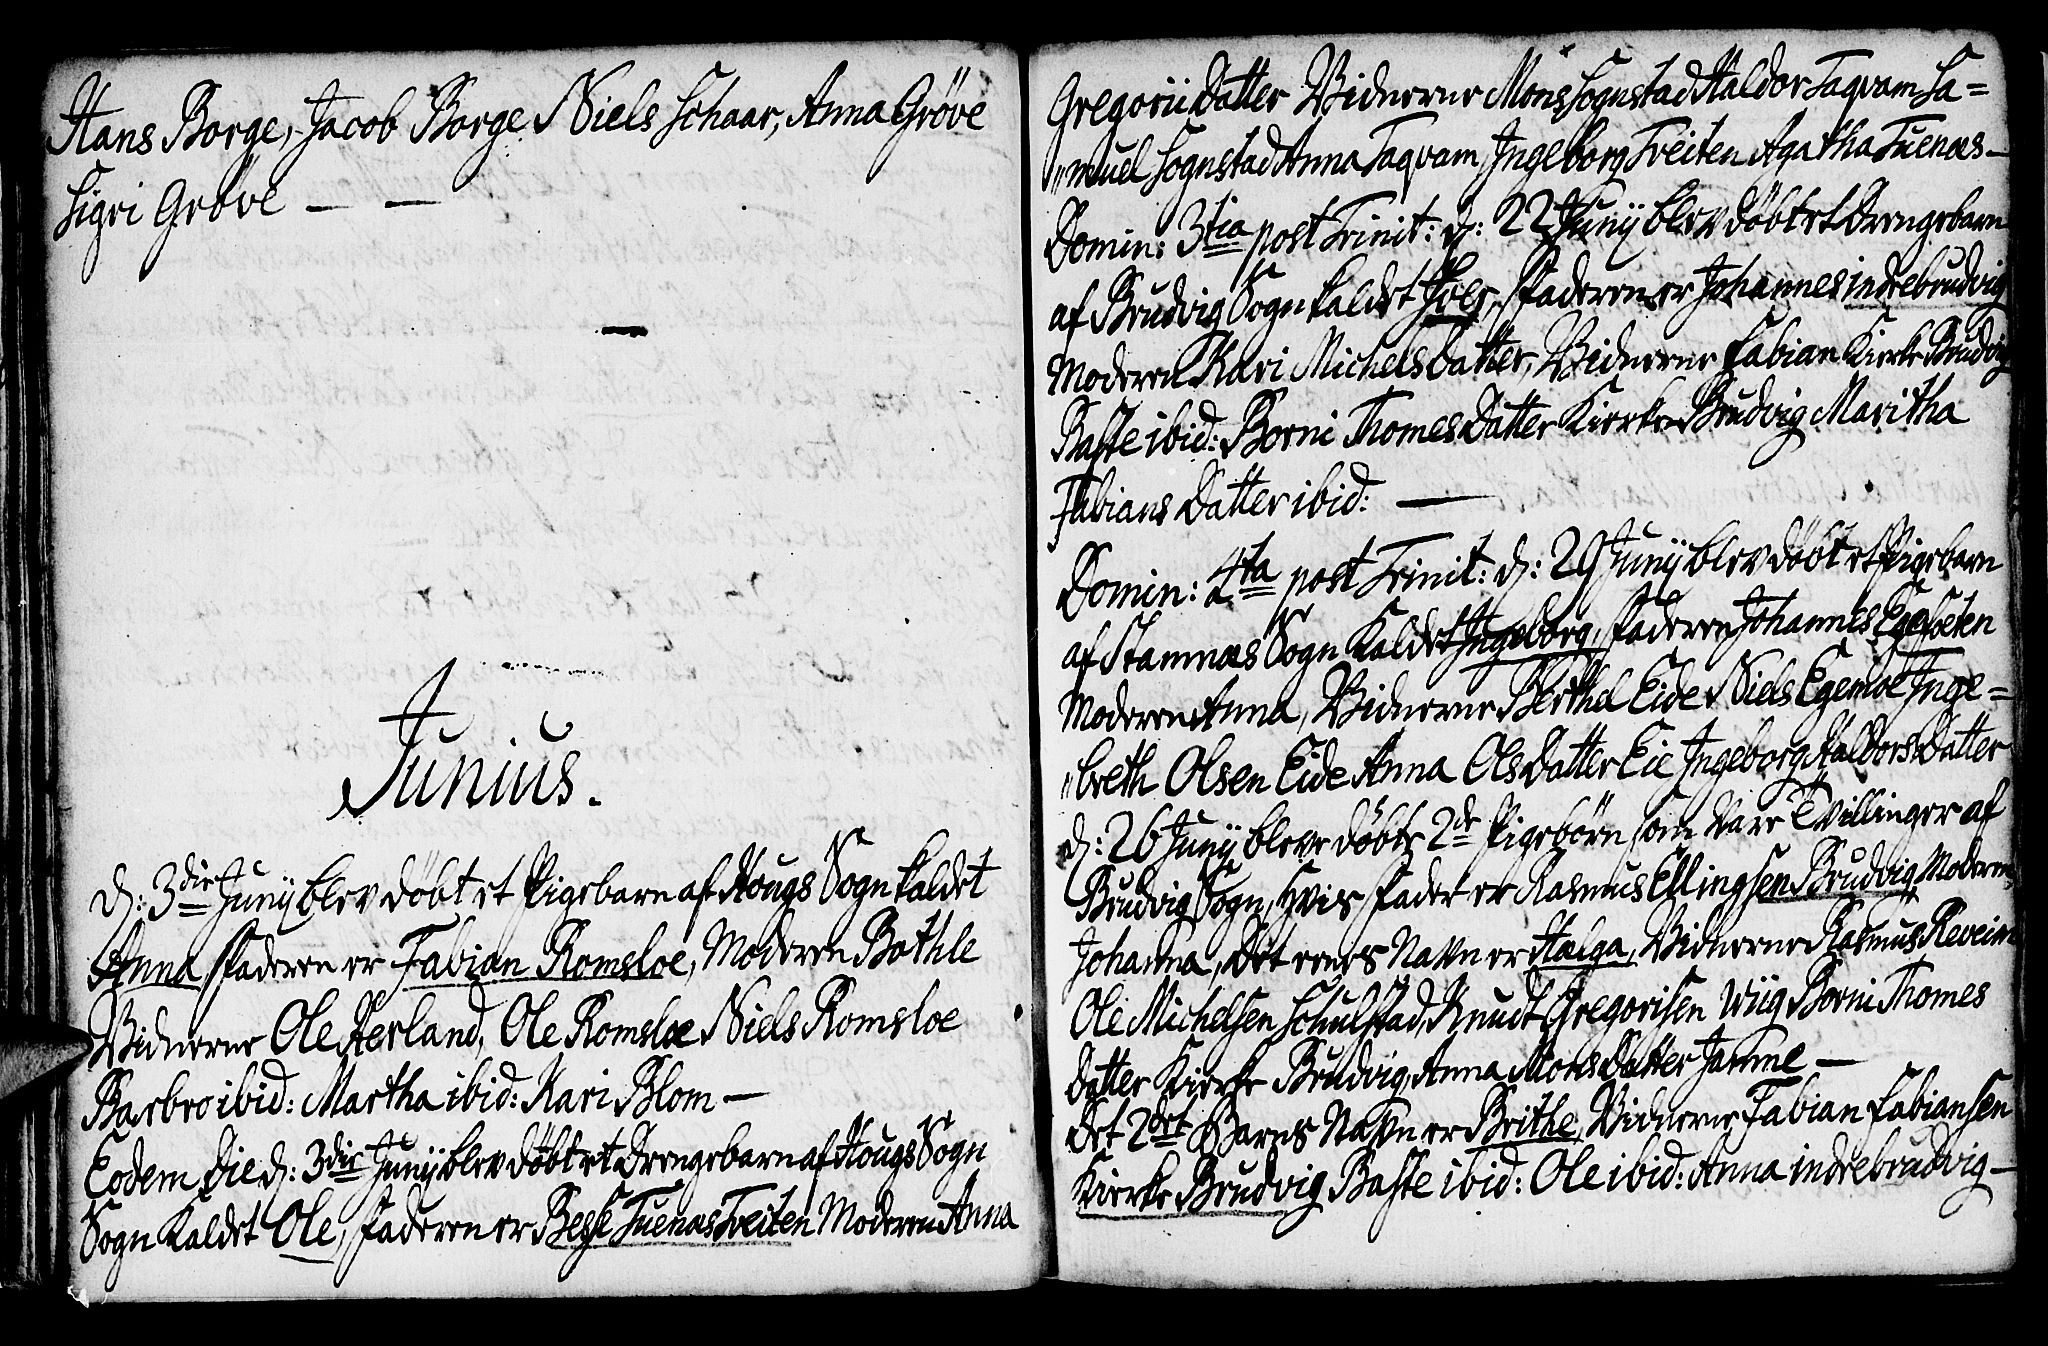 Hans Borge, Jacob Borge Niels Schaar, Anna Gröve
Sigri Gröve — —
Junius.
d: 3die Junij blev döbt et Pigebarn af Hougs Sogn kaldet
Anna, Faderen er Fabian Romsloe, Moderen Bothle
Vidnerne Ole Herland, Ole Romsloe Niels Romsloe
Barbro ibid: Martha ibid: Kari Blom —
Eodem die d: 3die Junij blev döbt et Drengebarn af Hougs Sogn
Sogn kaldet Ole, Faderen er Besse Tuenæs Tveiten Moderen Anna
Gregorii Datter Vidnerne Mons Sognstad Haldor Taqvam Sa=
"muel Sognstad Anna Taqvam, Ingeborg Tveiten Agatha Tuenæs —
Domin: 3tia post Trinit: d: 22 Junij blev döbt et Drengebarn
af Brudvig Sogn kaldet Joes, Faderen er Johannes indrebrudvig
Moderen Kari Michels Datter, Vidnerne Fabian Kirke Brudvig
Baste ibid: Borni Thomes Datter Kierke Brudvig Maritha
Fabians Datter ibid: —
Domin: 4ta post Trinit: d: 29 Junij blev döbt et Pigebarn
af Stamnæs Sogn kaldet Ingeborg, Faderen Johannes Egesæten
Moderen Anna, Vidnerne Berthel Eide Niels Egemoe Inge=
"breth Olsen Eide Anna Ols Datter Eie Ingeborg Haldors Datter
d: 26 Junij bleve döbte 2de Pigebörn som vare Tvillinger af
Brudvig Sogn, hvis Fader er Rasmus Ellingsen Brudvig, Moderen
Johanna, det eenes Navn er Hælga, Vidnerne Rasmus Reveim
Ole Michelsen Schulstad, Knudt Gregorisen Wiig Borni Thomes
datter Kierke Brudvig, Anna Mons Datter Jamne —
det 2det Barns Navn er Brithe, Vidnerne Fabian Fabiansen
Kierke Brudvig Baste ibid: Ole ibid: Anna indrebrudvig —